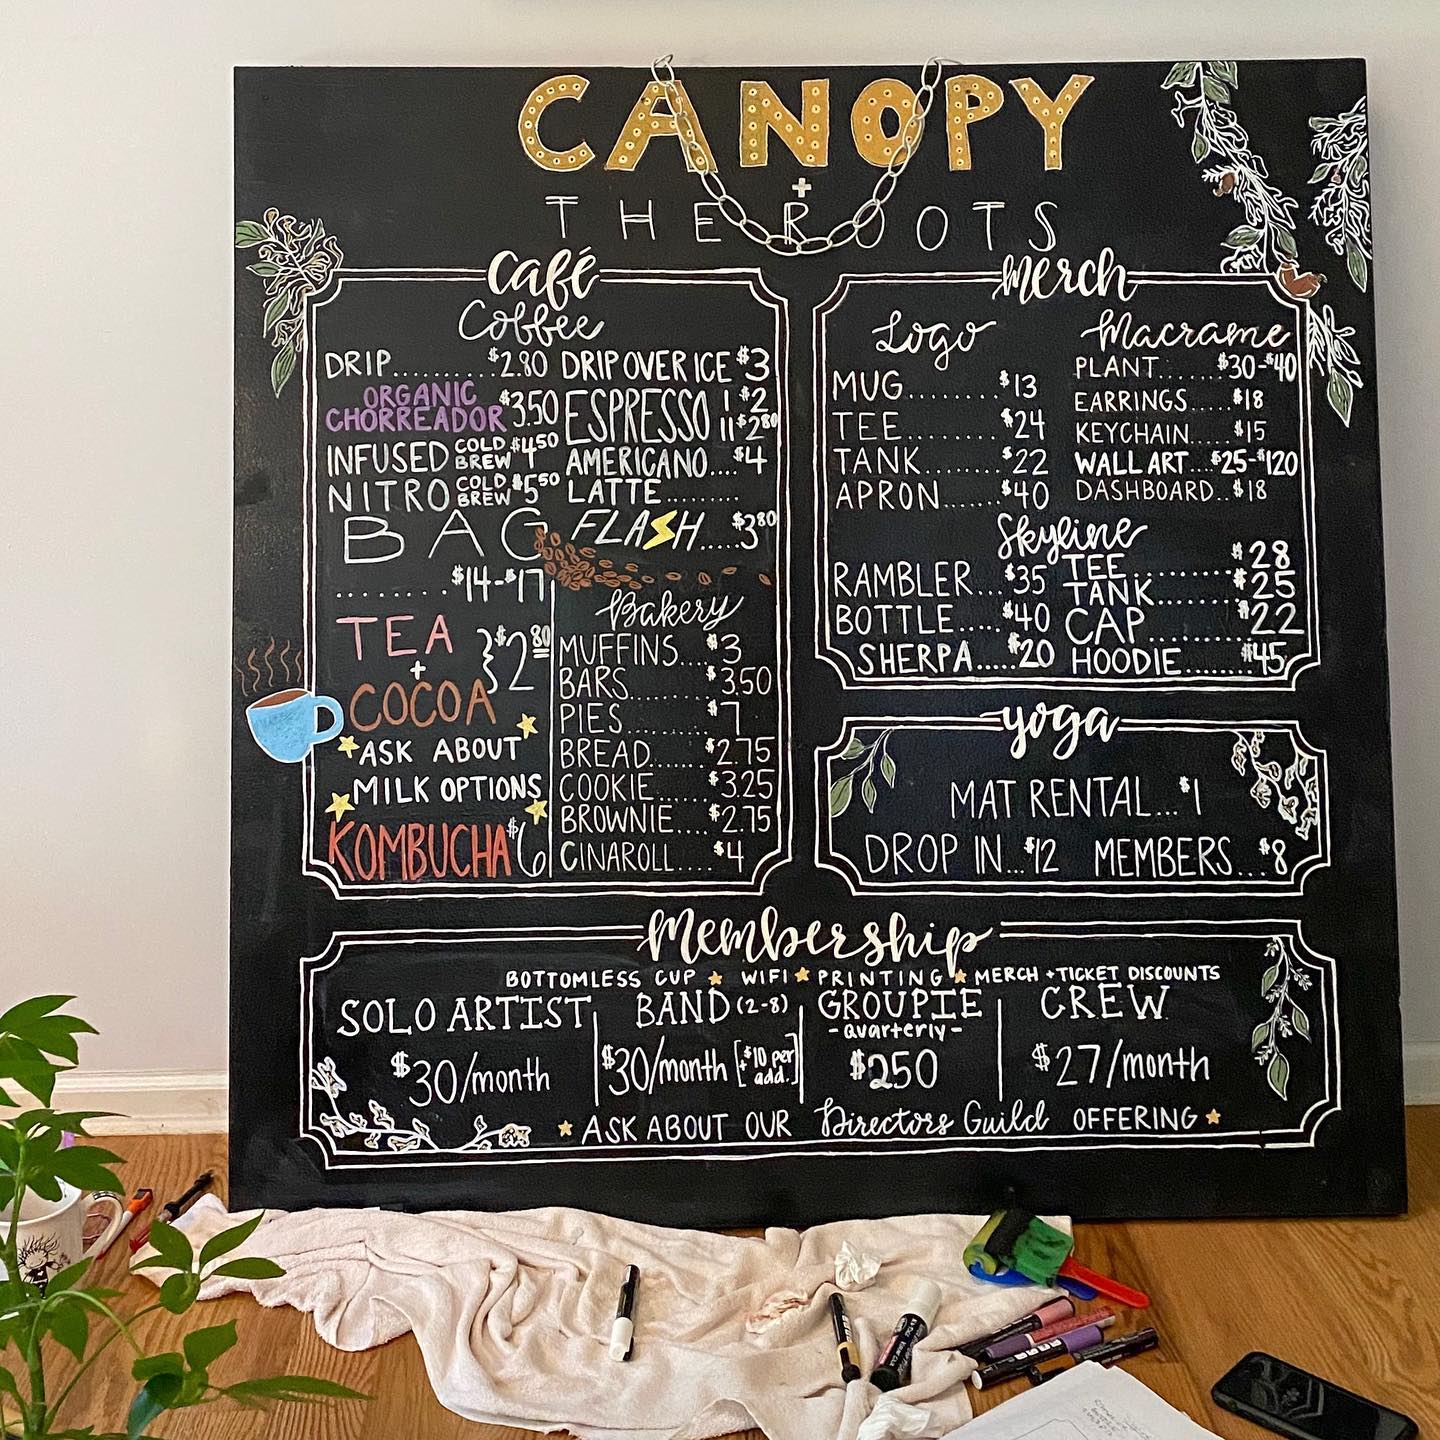 CANOPY
+
THE ROOTS
Café
Coffee
DRIP.......... $2.80
ORGANIC
CHORREADOR $3.50
INFUSED COLD BREW $4.50
NITRO COLD BREW $5.50
BAG
........ $14-$17
DRIP OVER ICE $3
ESPRESSO I $2
II $2.80
AMERICANO.... $4
LATTE.........
FLASH..... $3.80
TEA
+
COCOA
$2.80
ASK ABOUT
MILK OPTIONS
KOMBUCHA $6
Bakery
MUFFINS.... $3
BARS........ $3.50
PIES......... $7
BREAD...... $2.75
COOKIE...... $3.25
BROWNIE.... $2.75
CINAROLL.... $4
Merch
Logo
MUG........ $13
TEE........ $24
TANK....... $22
APRON...... $40
Macrame
PLANT...... $30-$40
EARRINGS..... $18
KEYCHAIN..... $15
WALL ART... $25-$120
DASHBOARD.. $18
Skyline
RAMBLER... $35
BOTTLE..... $40
SHERPA..... $20
TEE.......... $28
TANK........ $25
CAP......... $22
HOODIE....... $45
yoga
MAT RENTAL... $1
DROP IN... $12 MEMBERS... $8
Membership
BOTTOMLESS CUP ★ WIFI ★ PRINTING ★ MERCH + TICKET DISCOUNTS
SOLO ARTIST
$30/month
BAND (2-8)
$30/month [+ $10 per add.]
GROUPIE
- quarterly -
$250
CREW
$27/month
★ ASK ABOUT OUR Directors Guild OFFERING ★